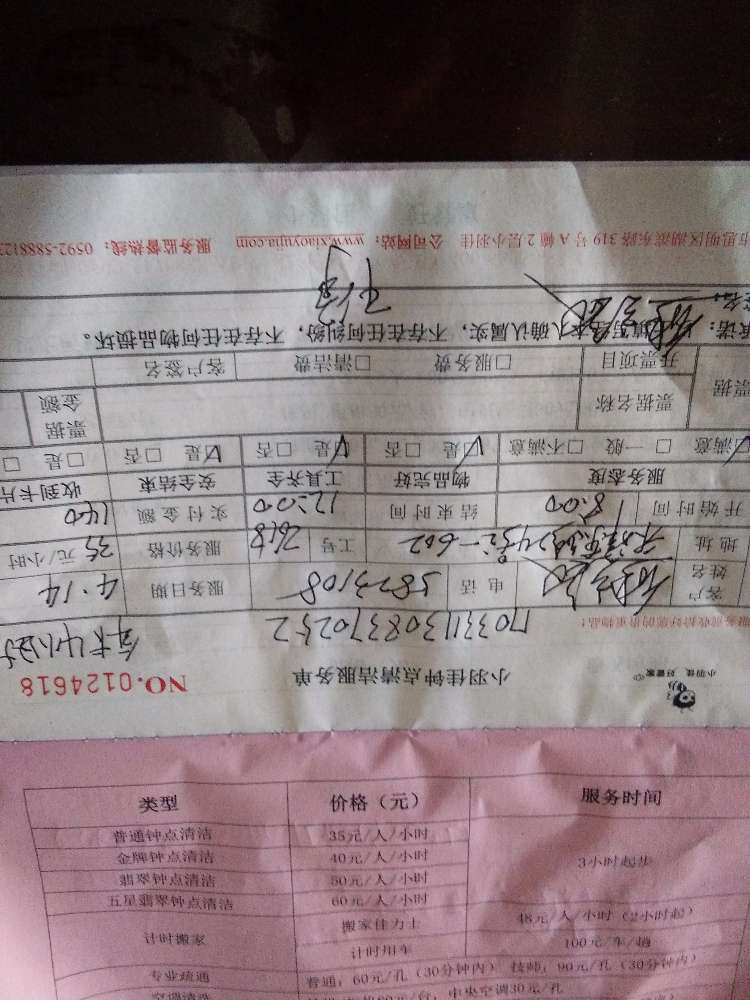 小羽佳 好管家
小羽佳钟点清洁服务单
NO.0124618
服务前收拾好您的贵重物品!
1703311308370252
客户姓名
电话 5873108
服务日期 4.14
地址
工号 2618
服务价格 35 元/小时
开始时间 8:00
结束时间 12:00
实付金额 140
服务态度
物品完好
工具齐全
安全结束
收到卡片
□满意 □一般 □不满意
□是 □否
□是 □否
□是 □否
□是 □
票据
票据名称
票据金额
开票项目
□服务费 □清洁费
客户签名
本人确认属实,不存在任何纠纷,不存在任何物品损坏。
市思明区湖滨东路 319 号 A 幢 2 层小羽佳 公司网站:www.xiaoyujia.com 服务监督热线:0592-5888123
类型 价格(元) 服务时间
普通钟点清洁 35元/人/小时
金牌钟点清洁 40元/人/小时
3小时起步
翡翠钟点清洁 50元/人/小时
五星翡翠钟点清洁 60元/人/小时
计时搬家
搬家佳力士 48元/人/小时(2小时起)
计时用车 100元/车/趟
专业疏通 普通:60元/孔(30分钟内) 技师:90元/孔(30分钟内)
空调清洗
中央空调30元/孔